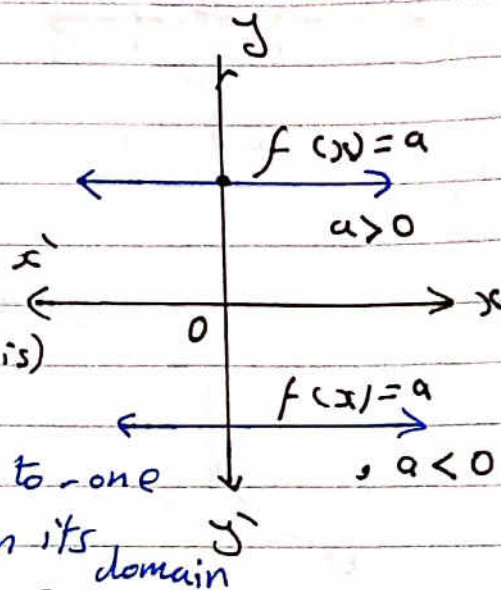 y
f(x) = a
a > 0
x`
x
0
is)
f(x) = a
, a < 0
to-one
n its
y`
domain